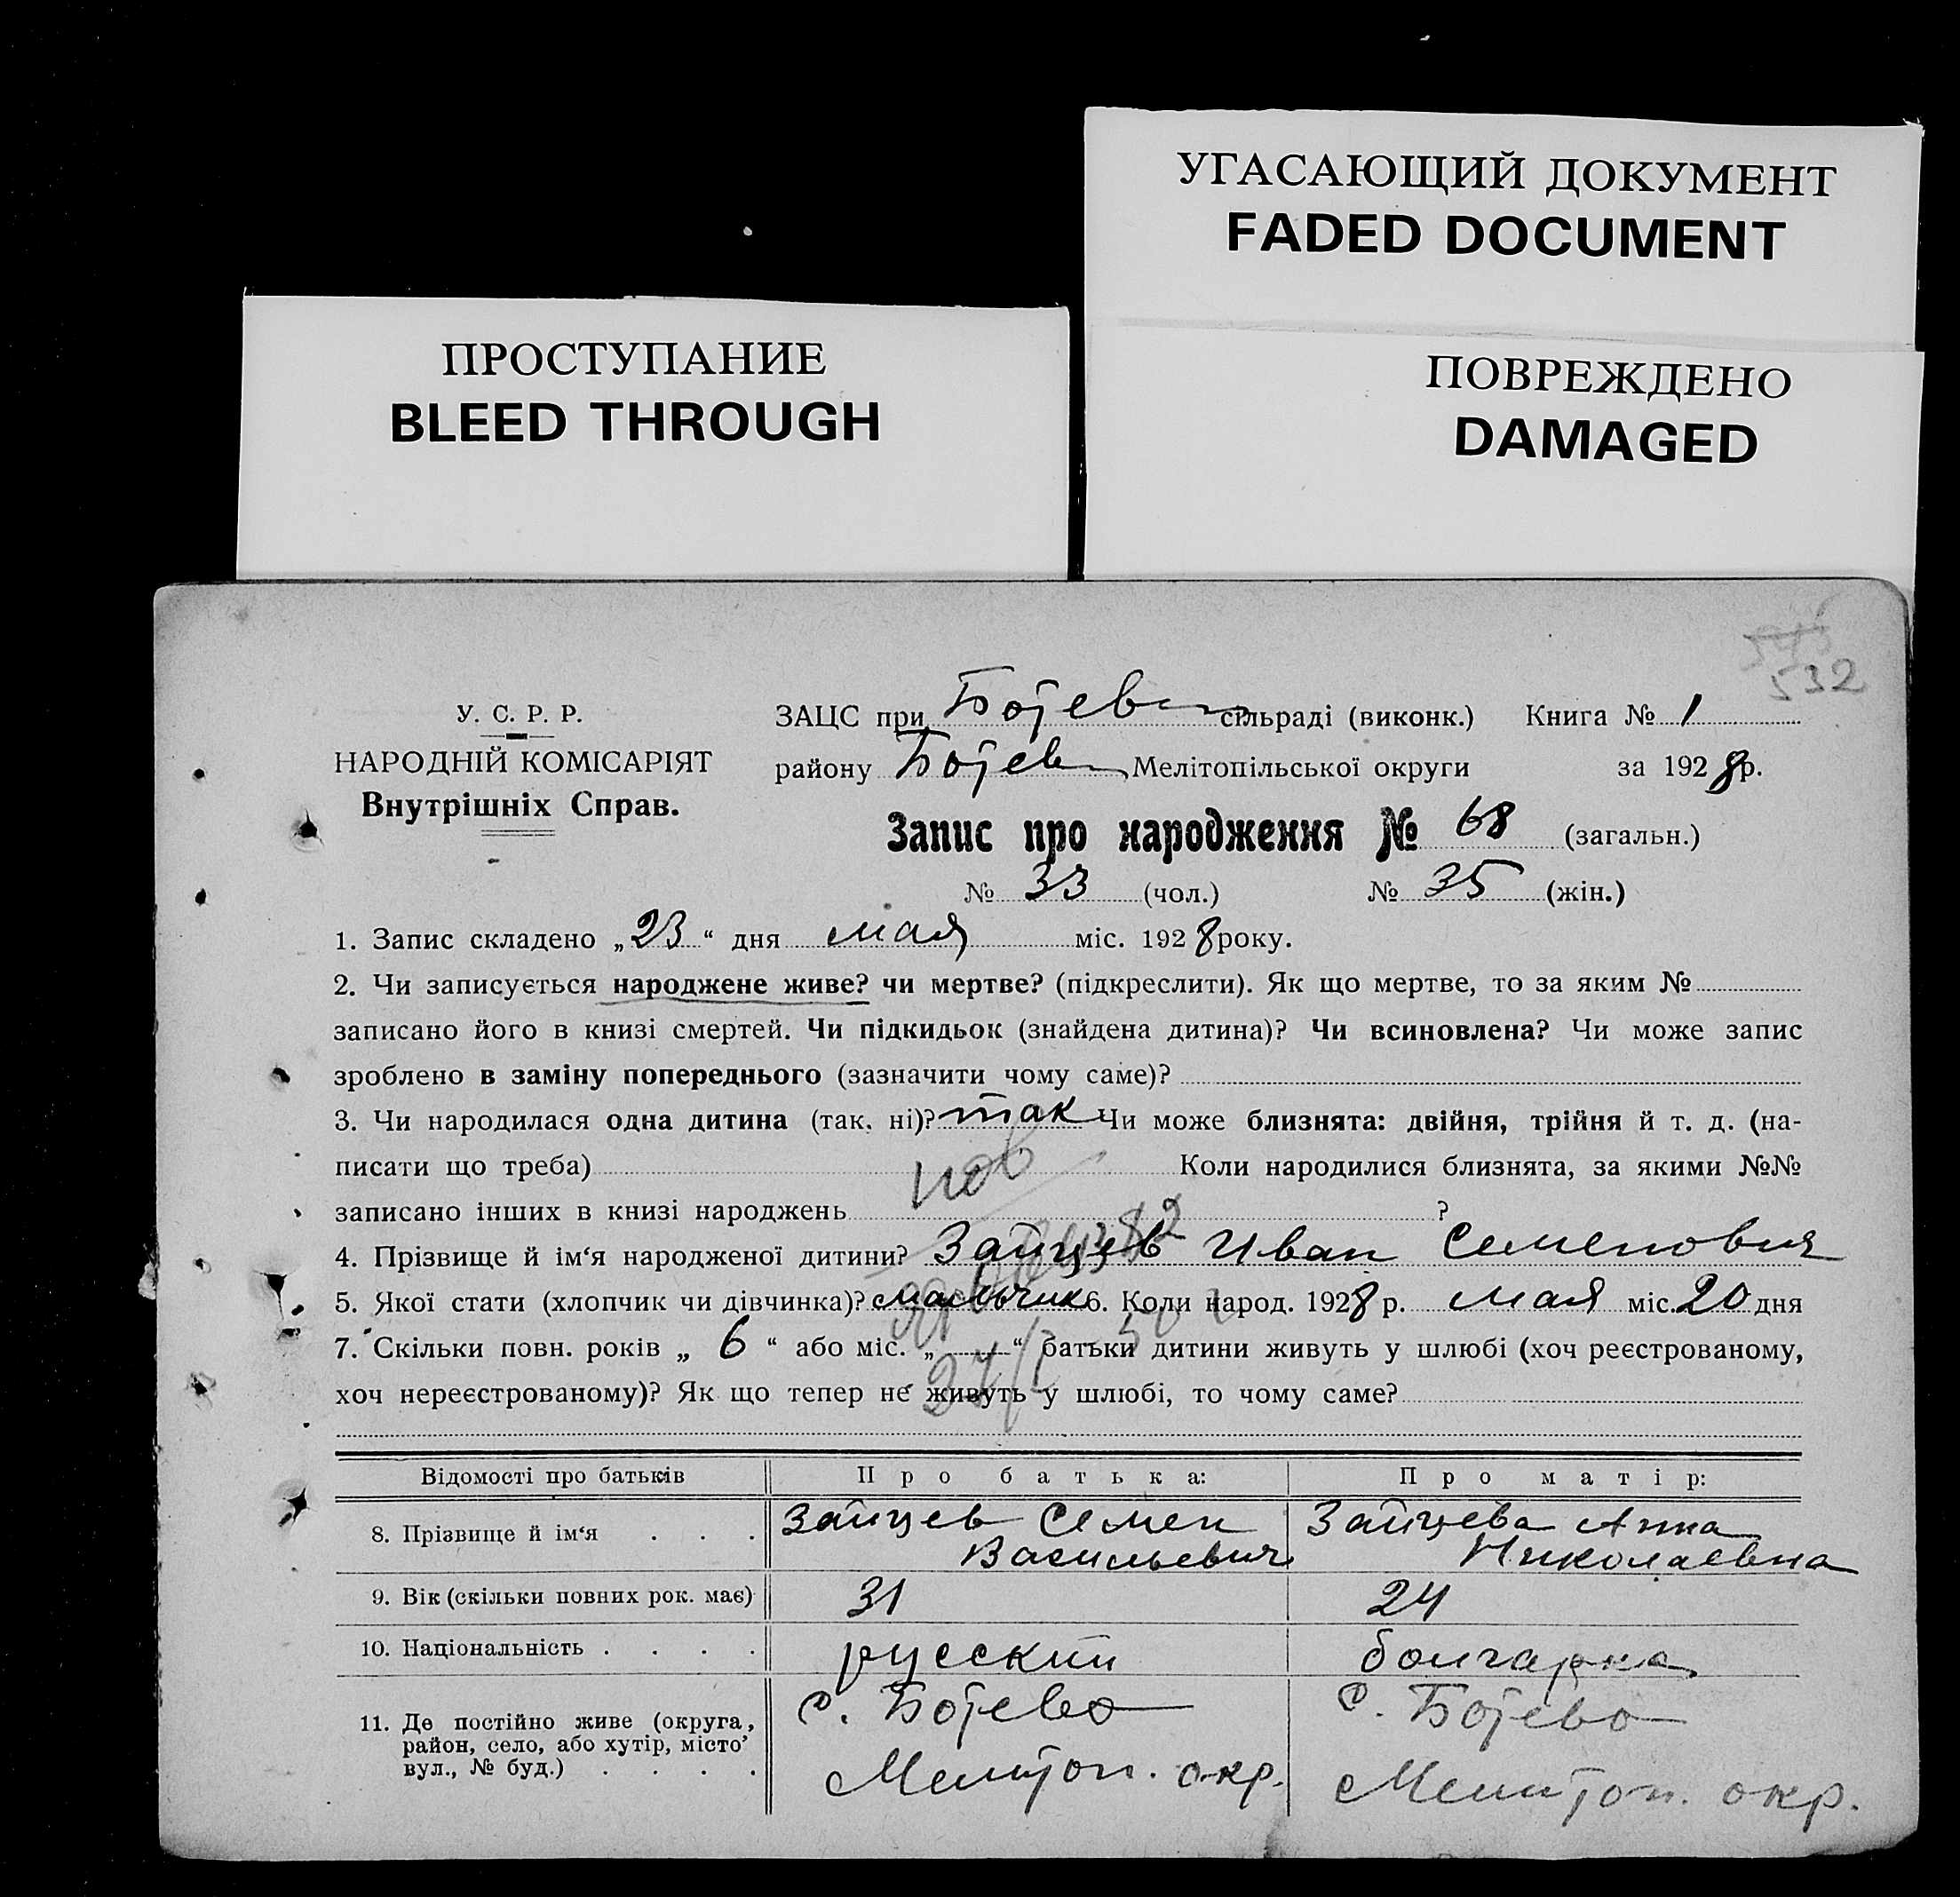 УГАСАЮЩИЙ ДОКУМЕНТ
FADED DOCUMENT
ПРОСТУПАНИЕ
BLEED THROUGH
ПОВРЕЖДЕНО
DAMAGED
532
У. С. Р. Р.
НАРОДНІЙ КОМІСАРІЯТ
Внутрішніх Справ.
ЗАЦС при Ботев сільраді (виконк.) Книга № 1
району Ботев Мелітопільської округи за 1928 р.
Запис про народження № 68 (загальн.)
№ 33 (чол.) № 35 (жін.)
1. Запис складено „23“ дня мая міс. 1928 року.
2. Чи записується народжене живе? чи мертве? (підкреслити). Як що мертве, то за яким №
записано його в книзі смертей. Чи підкидьок (знайдена дитина)? Чи всиновлена? Чи може запис
зроблено в заміну попереднього (зазначити чому саме)?
3. Чи народилася одна дитина (так, ні)? так Чи може близнята: двійня, трійня й т. д. (на-
писати що треба) Коли народилися близнята, за якими №№
записано інших в книзі народжень ?
4. Прізвище й ім‘я народженої дитини? Зайцев Иван Семенович
5. Якої стати (хлопчик чи дівчинка)? мальчик 6. Коли народ. 1928 р. мая міс. 20 дня
7. Скільки повн. років „ 6 “ або міс. „ — “ батьки дитини живуть у шлюбі (хоч реєстрованому,
хоч нереєстрованому)? Як що тепер не живуть у шлюбі, то чому саме?
Відомості про батьків Про батька: Про матір:
8. Прізвище й ім‘я . . . Зайцев Семен Васильевич Зайцева Анна Николаевна
9. Вік (скільки повних рок. має) 31 24
10. Національність . . . . русский болгарка
11. Де постійно живе (округа, район, село, або хутір, місто, вул., № буд.) . . . . с. Ботево Мелитоп. окр. с. Ботево Мелитоп. окр.